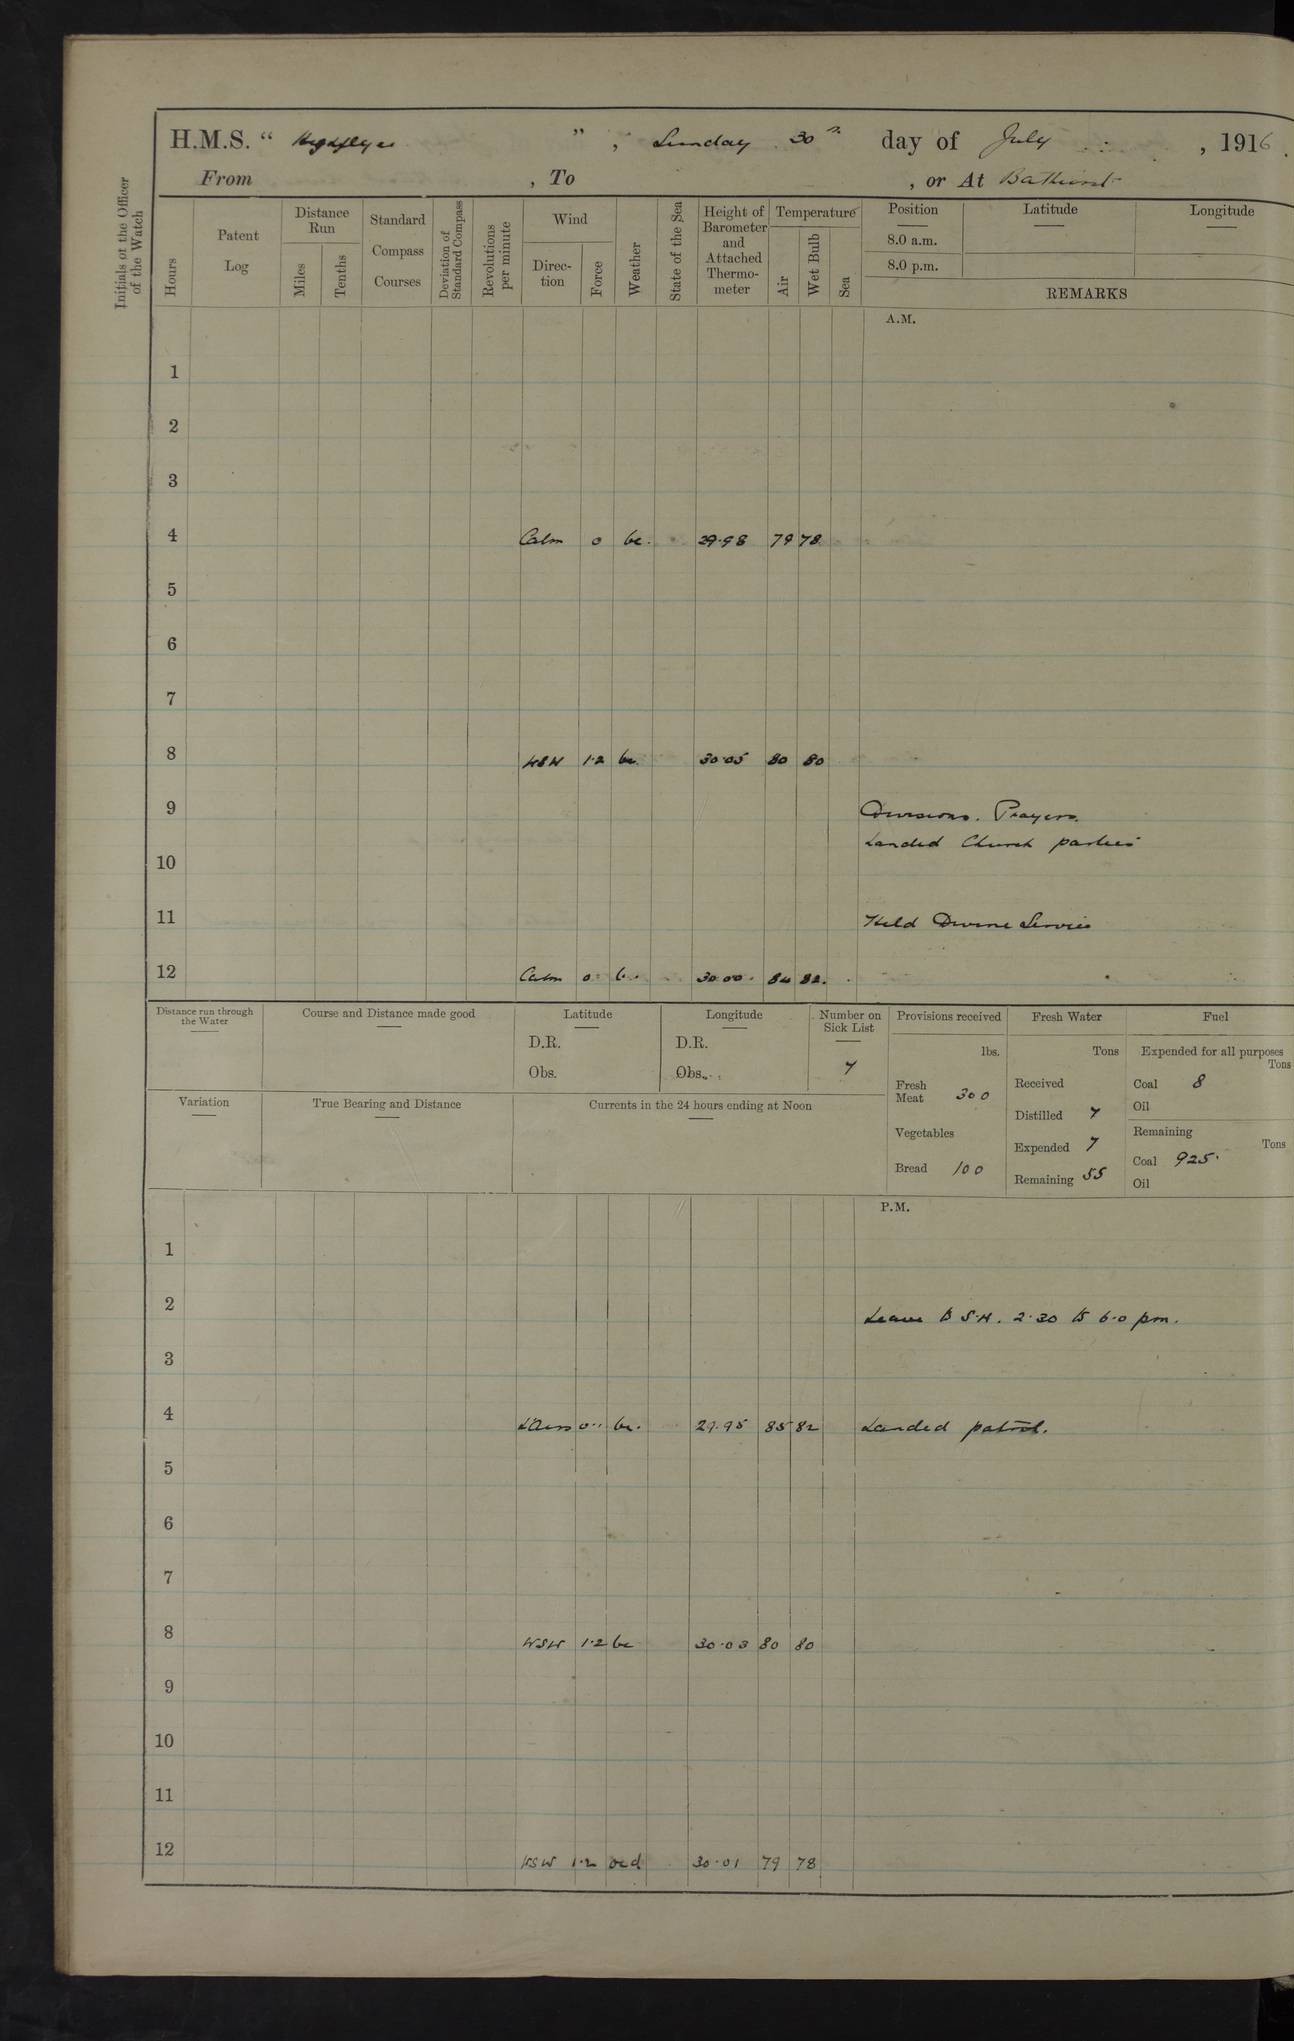 H.M.S. “ Highflyer ” , Sunday 30th day of July , 1916.
From , To , or At Bathurst
Initials of the Officer of the Watch
Hours
Patent Log
Distance Run
Miles
Tenths
Standard Compass Courses
Deviation of Standard Compass
Revolutions per minute
Wind
Direc- tion
Force
Weather
State of the Sea
Height of Barometer and Attached Thermo- meter
Temperature
Air
Wet Bulb
Sea
Position
8.0 a.m.
8.0 p.m.
Latitude
Longitude
REMARKS
A.M.
1
2
3
4 Calm 0 bc. 29.98 79 78
5
6
7
8 WSW 1.2 bc. 30.05 80 80
9 Divisions. Prayers.
Landed Church parties
10
11 Held Divine Service
12 Calm 0 b. 30.00 84 82.
Distance run through the Water
Course and Distance made good
Latitude
D.R.
Obs.
Longitude
D.R.
Obs.
Number on Sick List
7
Provisions received
lbs.
Fresh Meat 300
Vegetables
Bread 100
Fresh Water
Tons
Received
Distilled 7
Expended 7
Remaining 55
Fuel
Expended for all purposes
Tons
Coal 8
Oil
Remaining
Tons
Coal 925.
Oil
Variation
True Bearing and Distance
Currents in the 24 hours ending at Noon
P.M.
1
2 Leave to S.W. 2.30 to 6.0 pm.
3
4 0 bc. 29.95 85 82 Landed patrol.
5
6
7
8 WSW 1.2 bc 30.03 80 80
9
10
11
12 WSW 1.2 ocd 30.01 79 78